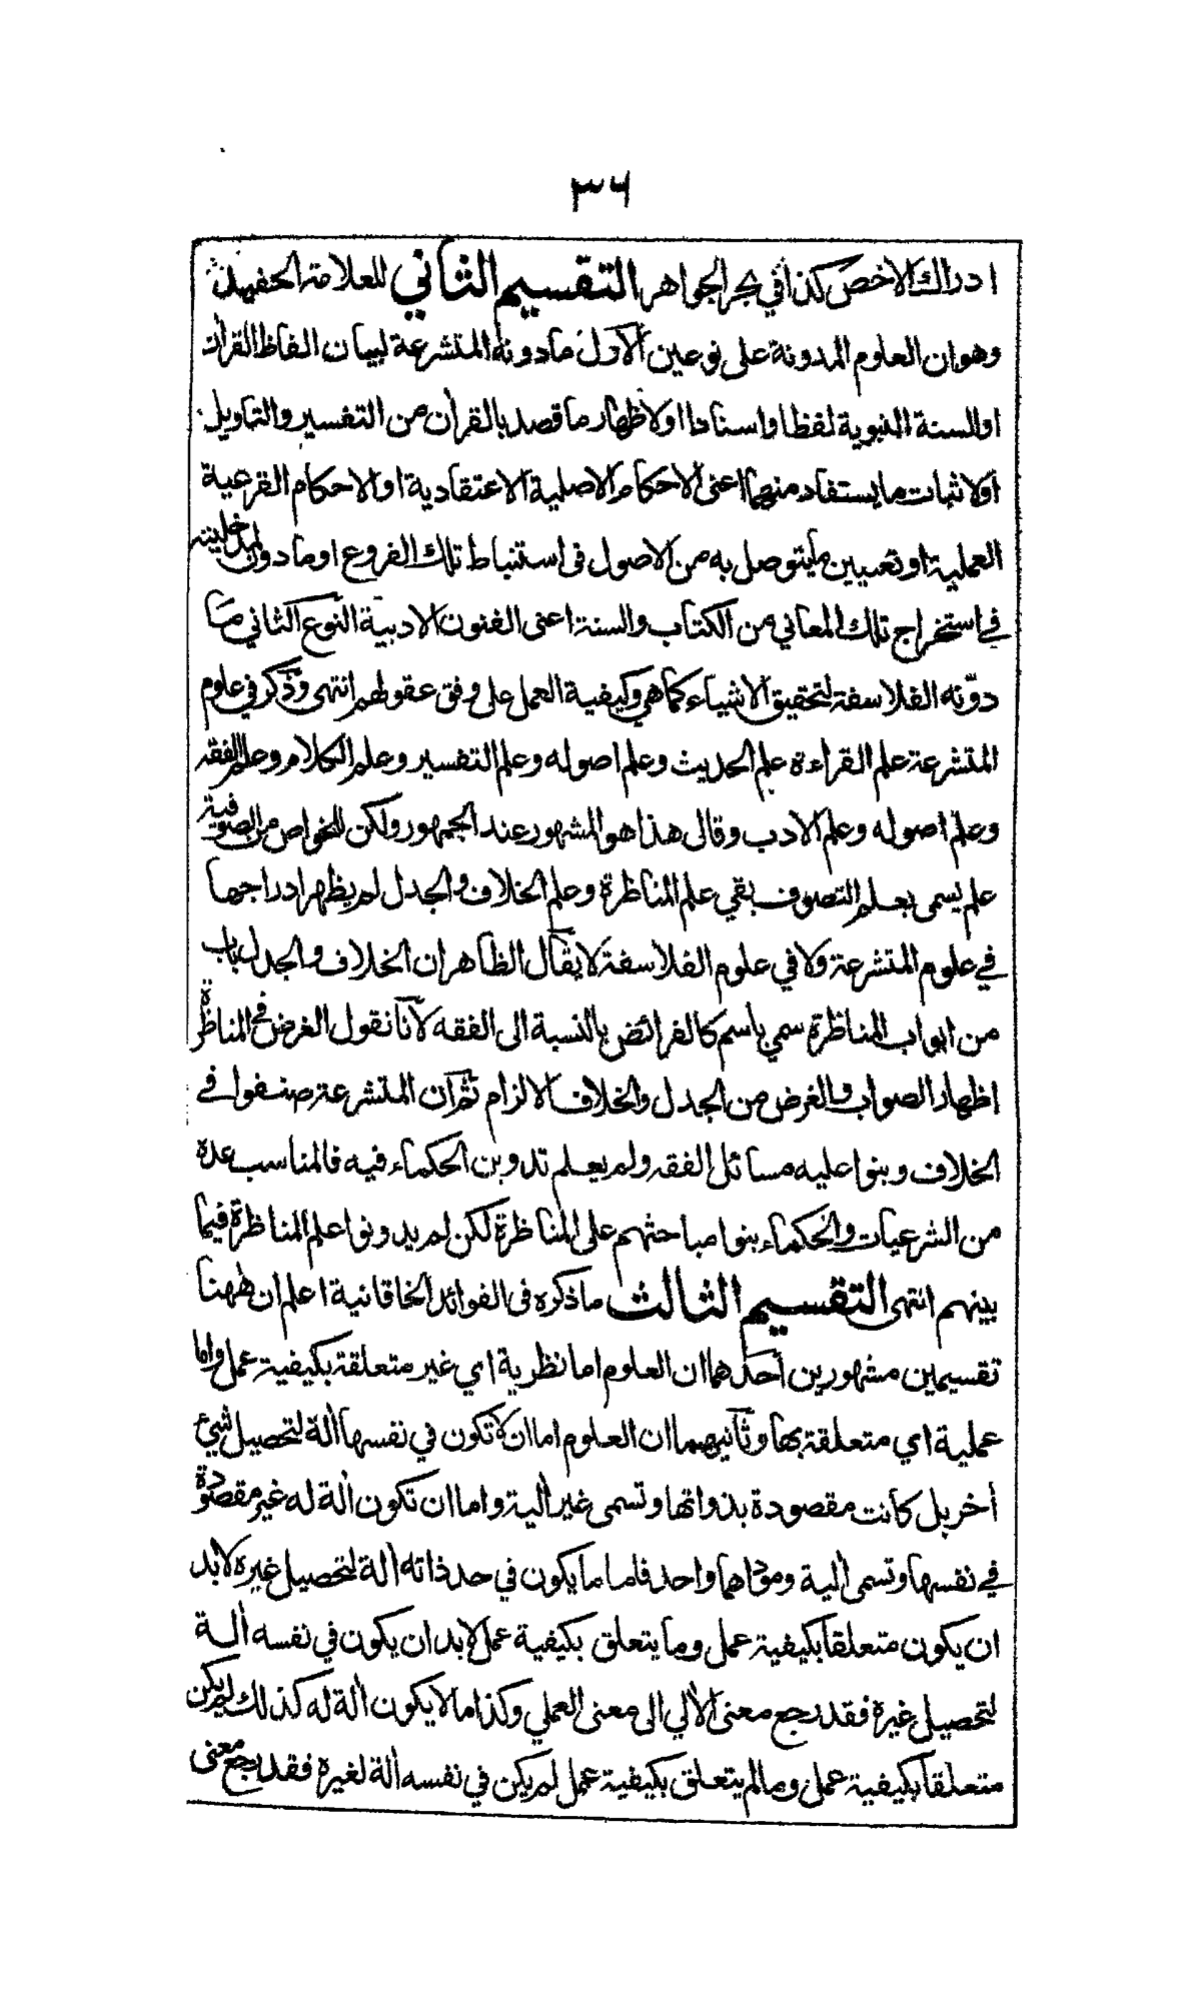 ٣٦
ادراك الاخص كذا في بحر الجواهر التقسيم الثاني للعلامة الحفيد
وهو ان العلوم المدونة على نوعين الاول ما دونه المتشرعة لبيان الفاظ القران
او السنة النبوية لفظا واسنادا او لاظهار ما قصد بالقران من التفسير والتاويل
او لاثبات ما يستفاد منهما اعنى الاحكام الاصلية الاعتقادية او الاحكام الفرعية
العملية او تعيين ما يتوصل به من الاصول فى استنباط تلك الفروع او ما دون لمدخليته
في استخراج تلك المعاني من الكتاب والسنة اعنى الفنون الادبية النوع الثاني ما
دوّنه الفلاسفة لتحقيق الاشياء كما هي وكيفية العمل على وفق عقولهم انتهى وذكر في علوم
المتشرعة علم القراءة علم الحديث وعلم اصوله وعلم التفسير وعلم الكلام وعلم الفقه
وعلم اصوله وعلم الادب وقال هذا هو المشهور عند الجمهور ولكن للخواص من الصوفية
علم يسمى بعلم التصوف بقي علم المناظرة وعلم الخلاف والجدل لم يظهر ادراجها
في علوم المتشرعة ولا في علوم الفلاسفة لا يقال الظاهر ان الخلاف والجدل باب
من ابواب المناظرة سمي باسم كالفرائض بالنسبة الى الفقه لانا نقول الغرض في المناظرة
اظهار الصواب والغرض من الجدل والخلاف الالزام ثم ان المتشرعة صنفوا في
الخلاف وبنوا عليه مسائل الفقه ولم يعلم تدوين الحكماء فيه فالمناسب عده
من الشرعيات والحكماء بنوا مباحثهم على المناظرة لكن لم يدونوا علم المناظرة فيما
بينهم انتهى التقسيم الثالث ما ذكره فى الفوائد الخاقانية اعلم ان ههنا
تقسيمين مشهورين أحدهما ان العلوم اما نظرية اي غير متعلقة بكيفية عمل واما
عملية اي متعلقة بها وثانيهما ان العلوم اما ان لا تكون في نفسها ألة لتحصيل شيء
أخر بل كانت مقصودة بذواتها وتسمى غير ألية واما ان تكون ألة له غير مقصودة
في نفسها وتسمى ألية ومؤداهما واحد فاما ما يكون في حد ذاته ألة لتحصيل غيره لابد
ان يكون متعلقا بكيفية عمل وما يتعلق بكيفية عمل لابد ان يكون في نفسه ألة
لتحصيل غيره فقد رجع معنى الألي الى معنى العملي وكذا ما لا يكون ألة له كذلك لم يكن
متعلقا بكيفية عمل وما لم يتعلق بكيفية عمل لم يكن في نفسه ألة لغيره فقد رجع معنى